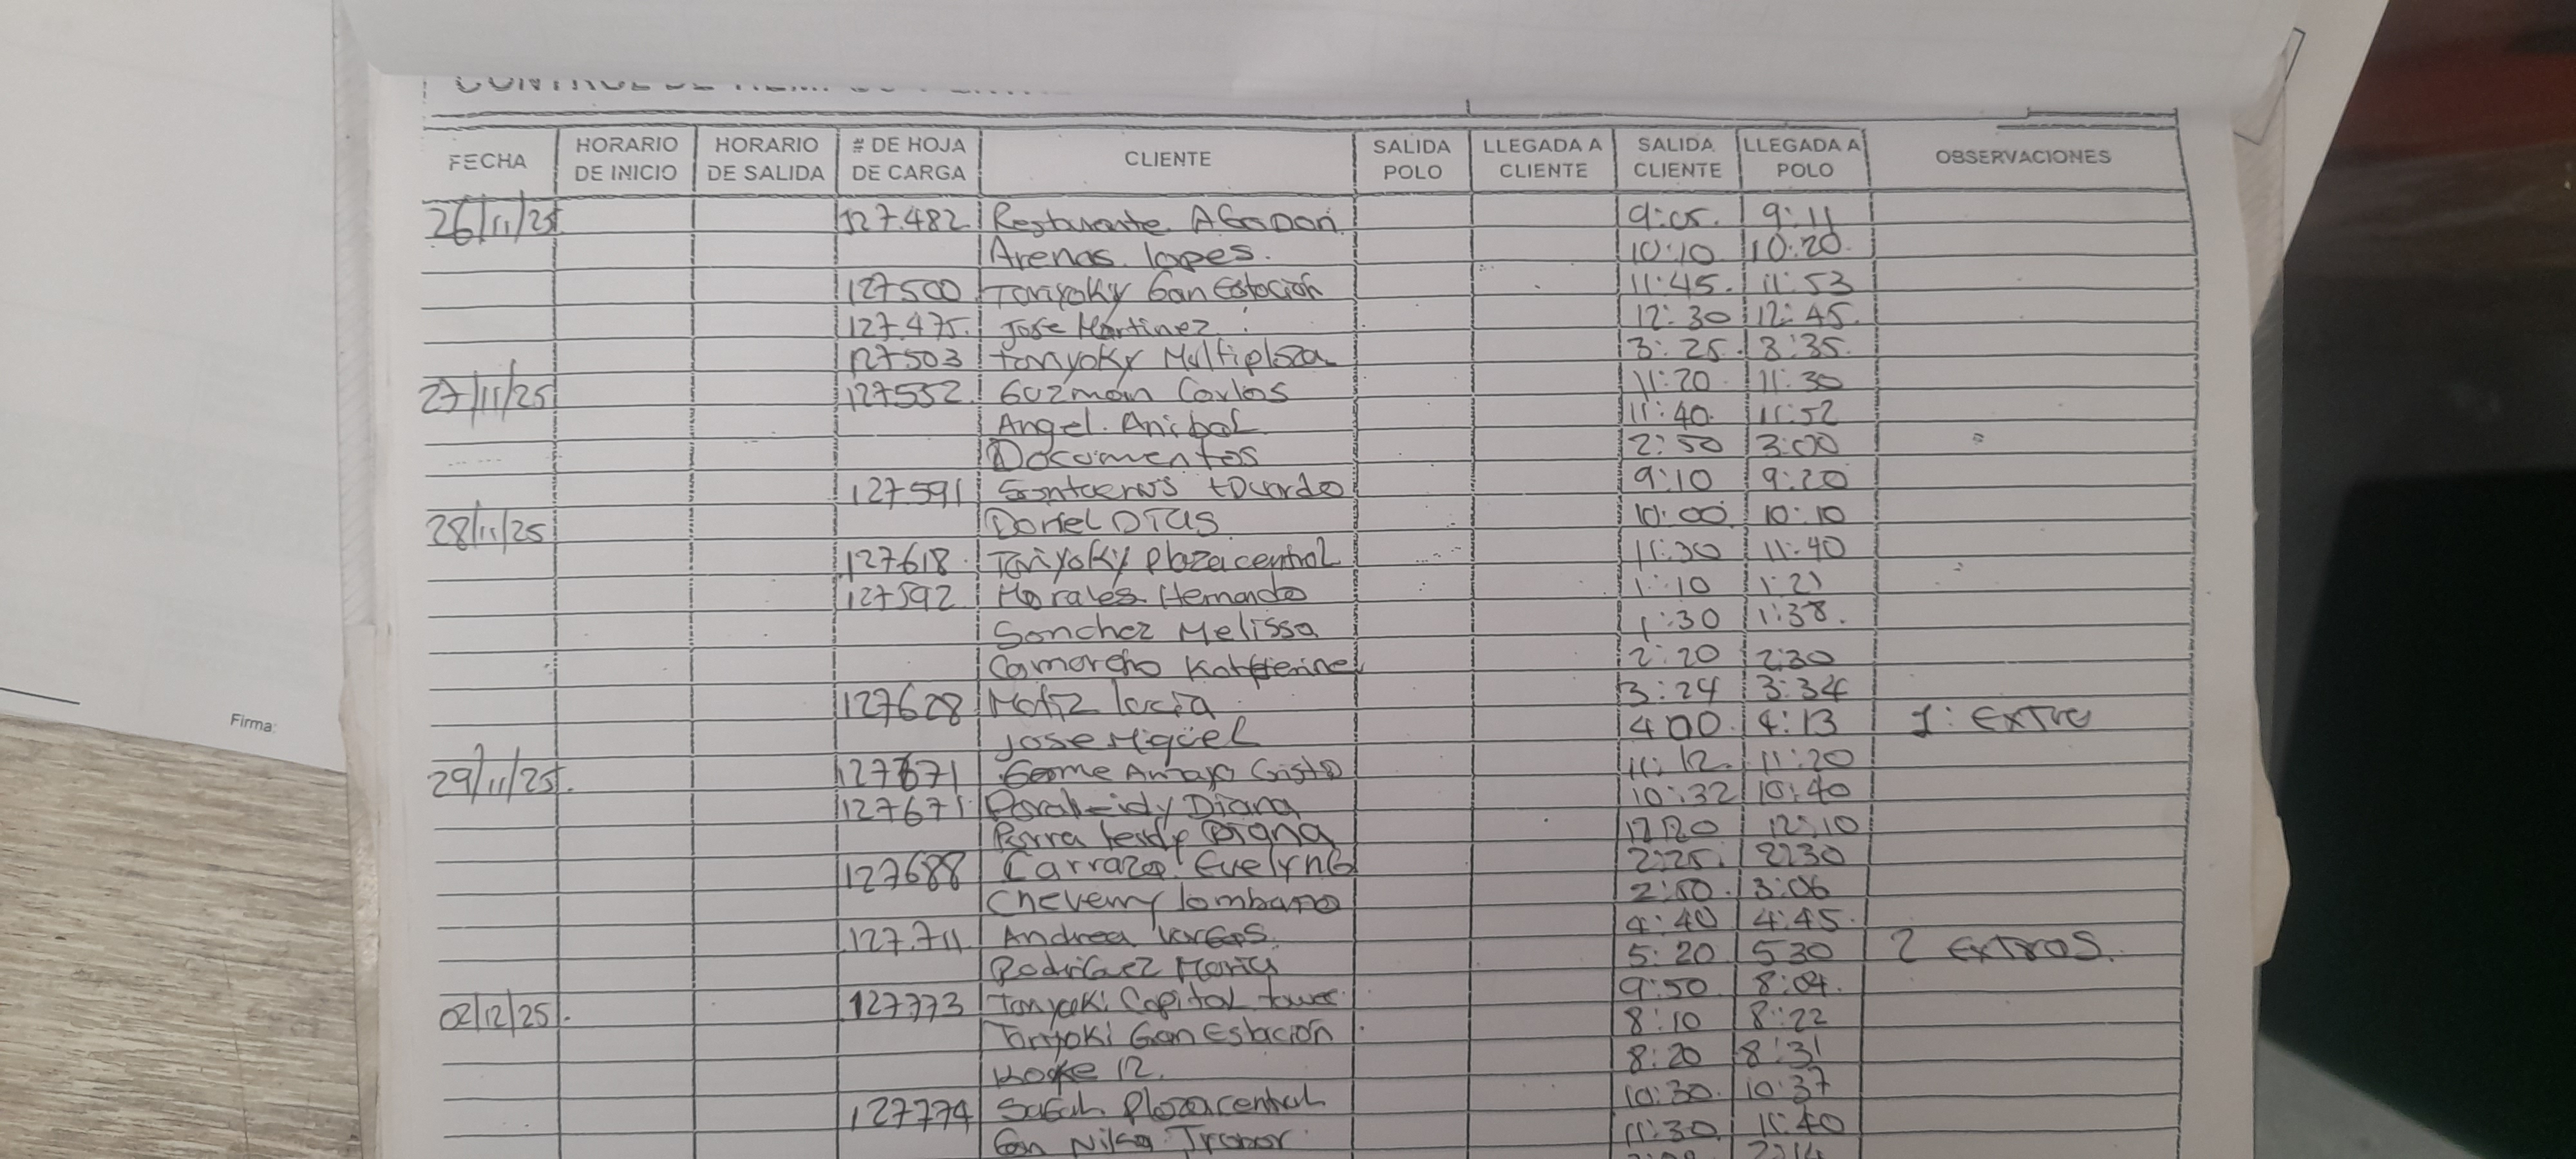 FECHA HORARIO DE INICIO HORARIO DE SALIDA # DE HOJA DE CARGA CLIENTE SALIDA POLO LLEGADA A CLIENTE SALIDA CLIENTE LLEGADA A POLO OBSERVACIONES
26/11/25 127.482 9:05 9:11
Arenas lopes. 10:10 10:20
127500 Gan Estación 11:45 11:53
127.475 Jose Martinez 12:30 12:45
127503 Tonyoky Multiplaza 3:25 3:35
27/11/25 127532 Guzmán Carlos 11:20 11:30
Angel. Anibal 11:40 11:52
Documentos 2:50 3:00
127591 9:10 9:20
28/11/25 10:00 10:10
127618 plazacentral 11:30 11:40
127592 Morales Hernando 1:10 1:21
Sanchez Melissa 1:30 1:38
Camargo 2:20 2:30
127628 Matiz lucia 3:24 3:34
Jose Miguel 4:00 4:13 1: Extra
29/11/25 127671 11:12 11:20
127671 Diana 10:32 10:40
Parra Diana 12:10
127688 2:25 2:30
2:50 3:06
127.711 Andrea Vargas 4:40 4:45
Rodriguez Maria 5:20 530 2 Extras.
02/12/25 127773 Capital tower 9:50 8:04
Gan Estación 8:10 8:22
Koke 12. 8:20 8:31
127774 Plazacentral 10:30 10:37
11:30 11:40
Firma: